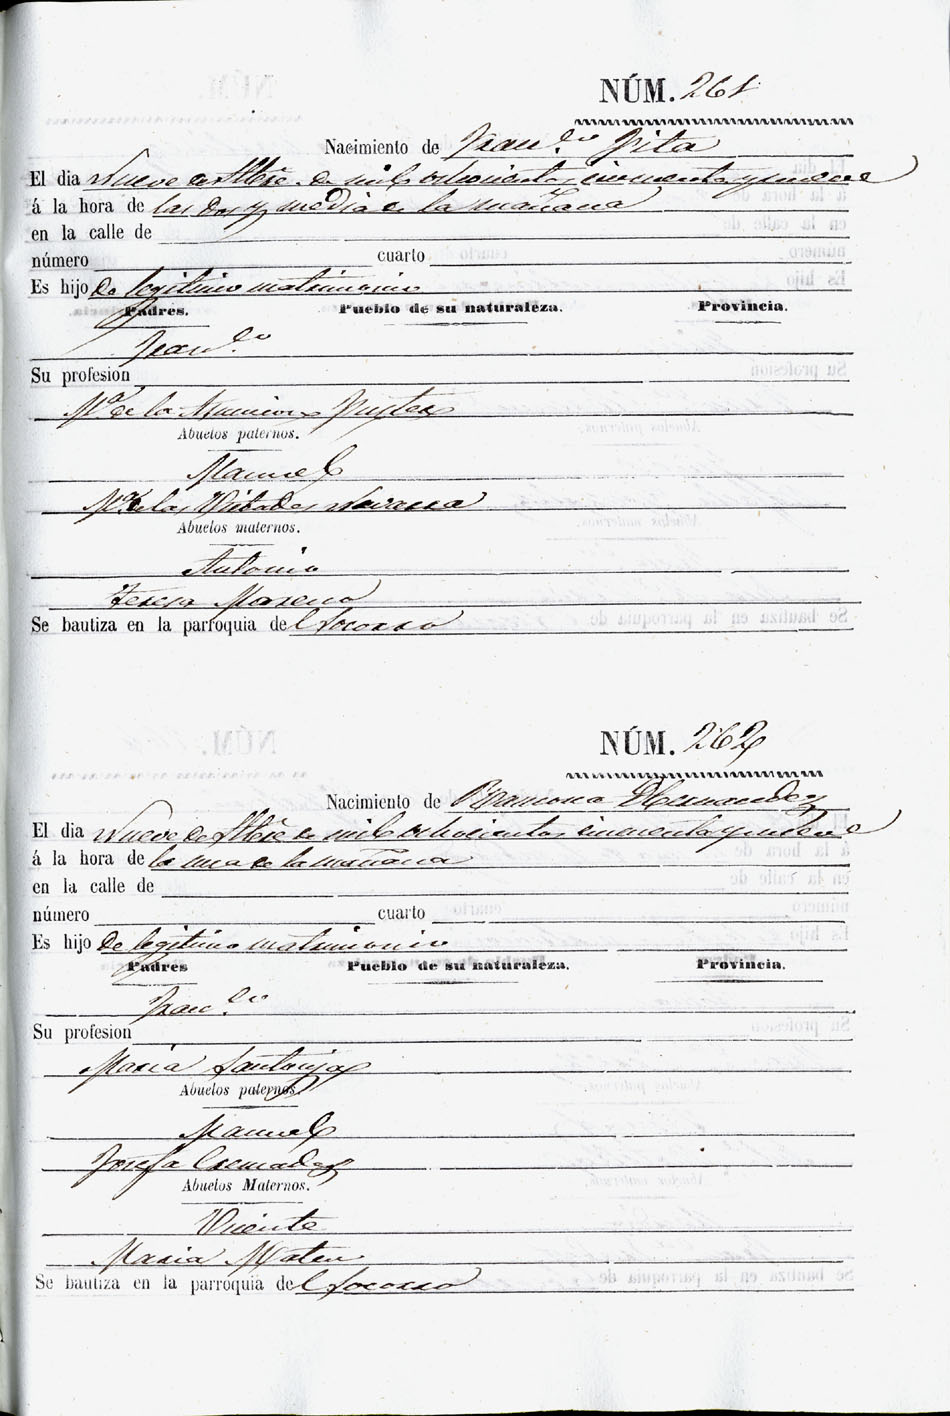 NÚM. 261
Nacimiento de Fran.co Pita
El dia Nueve de Stbre. de mil ochocientos cincuenta y nueve
á la hora de las dos y media de la mañana
en la calle de
número cuarto
Es hijo de legitimo matrimonio
Padres. Pueblo de su naturaleza. Provincia.
Fran.co
Su profesion
M.a de la Asuncion
Abuelos paternos.
Manuel
M.a de las Virtudes Navarro
Abuelos maternos.
Antonio
Teresa Moreno
Se bautiza en la parroquia del Socorro
NÚM. 262
Nacimiento de Ramona Hernandez
El dia Nueve de Stbre de mil ochocientos cincuenta y nueve
á la hora de la una de la mañana
en la calle de
número cuarto
Es hijo de legitimo matrimonio
Padres Pueblo de su naturaleza. Provincia.
Fran.co
Su profesion
Maria Santonja
Abuelos paternos.
Manuel
Josefa Cremades
Abuelos Maternos.
Vicente
Maria Mateu
Se bautiza en la parroquia del Socorro